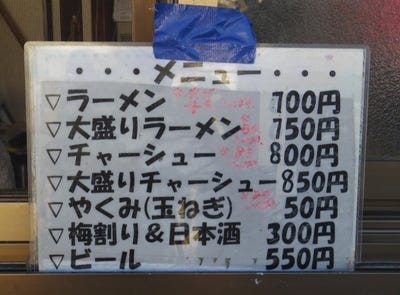 ・・・メニュー・・・
▽ラーメン 700円
▽大盛りラーメン 750円
▽チャーシュー 800円
▽大盛りチャーシュー 850円
▽やくみ(玉ねぎ) 50円
▽梅割り&日本酒 300円
▽ビール 550円